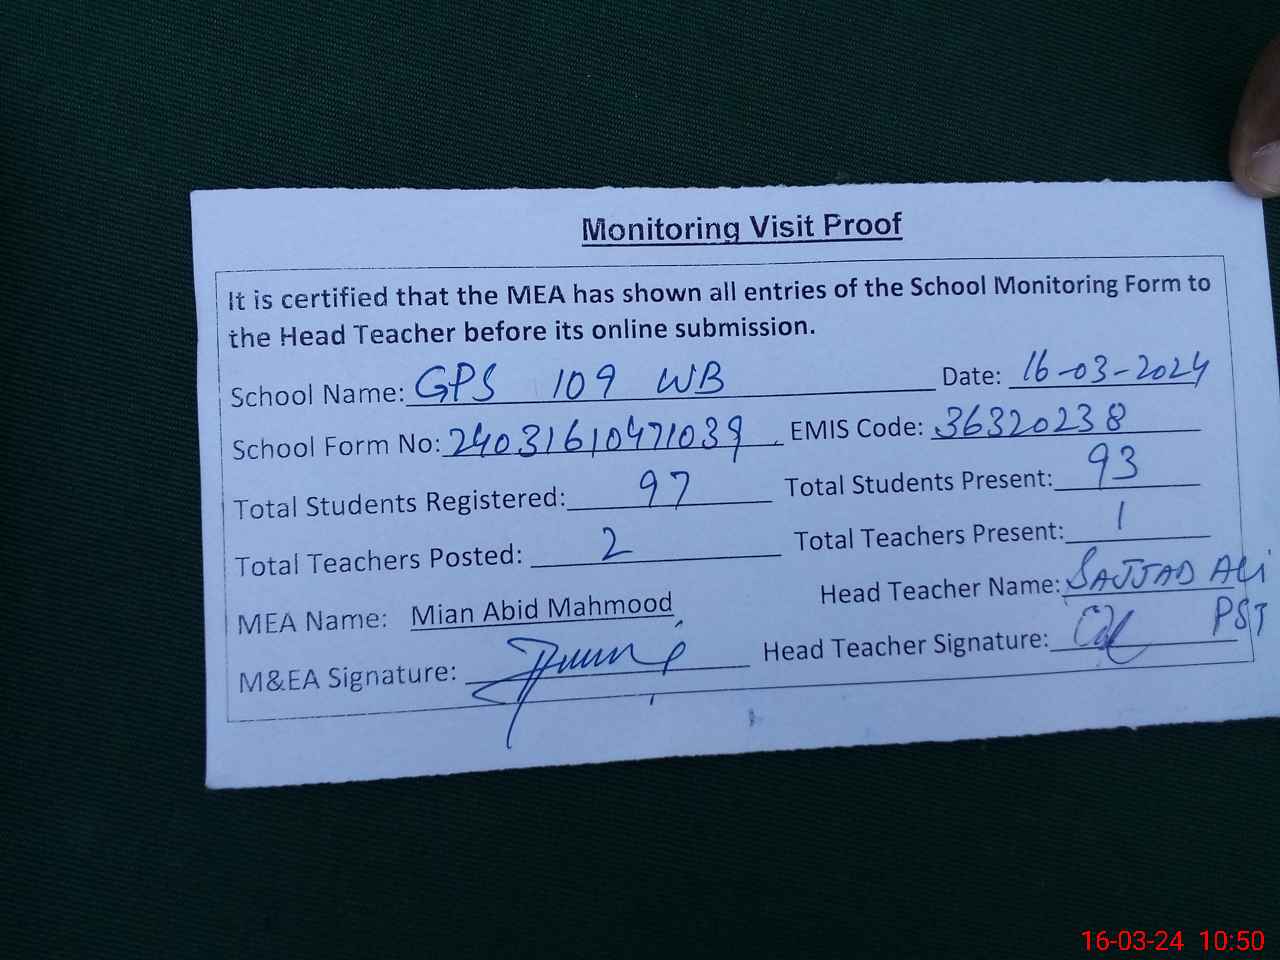 Monitoring Visit Proof
It is certified that the MEA has shown all entries of the School Monitoring Form to
the Head Teacher before its online submission.
School Name: GPS 109 WB Date: 16-03-2024
School Form No: 24031610471039 EMIS Code: 36320238
Total Students Registered: 97 Total Students Present: 93
Total Teachers Posted: 2 Total Teachers Present: 1
MEA Name: Mian Abid Mahmood Head Teacher Name: SAJJAD ALi
PST
M&EA Signature: Head Teacher Signature:
16-03-24 10:50